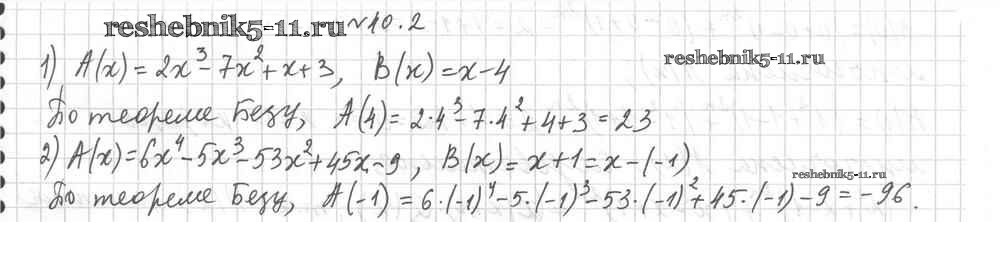 reshebnik5-11.ru №10.2
1) A(x) = 2x³ - 7x² + x + 3, B(x) = x - 4
reshebnik5-11.ru
По теореме Безу, A(4) = 2·4³ - 7·4² + 4 + 3 = 23
2) A(x) = 6x⁴ - 5x³ - 53x² + 45x - 9, B(x) = x + 1 = x - (-1)
reshebnik5-11.ru
По теореме Безу, A(-1) = 6·(-1)⁴ - 5·(-1)³ - 53·(-1)² + 45·(-1) - 9 = -96.